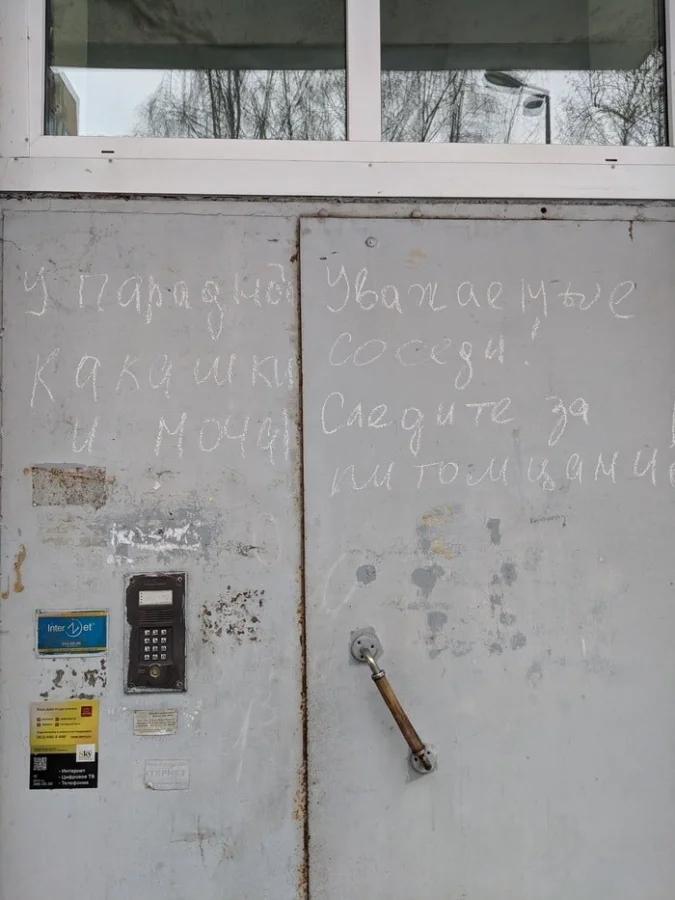 У парадной
какашки
и моча
Уважаемые
соседи!
Следите за
питомцами
InterZet
- Интернет
- Цифровое ТВ
- Телефония
sky